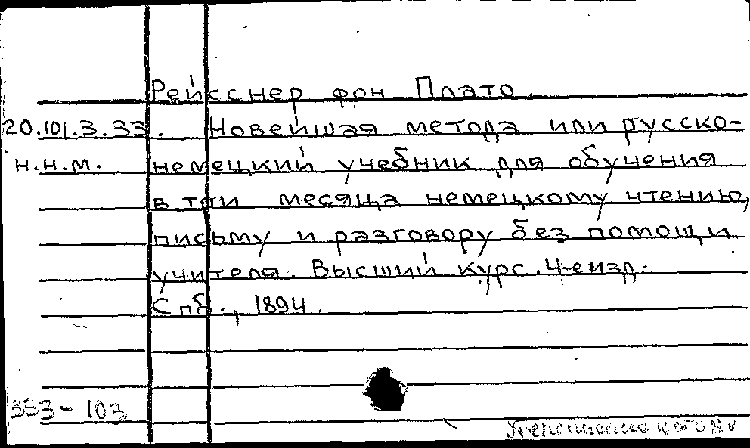 Рейсснер фон Плато
20.101.3.33. Новейшая метода или русско-
н.н.м. немецкий учебник для обучения
в три месяца немецкому чтению,
письму и разговору без помощи
учителя. Высший курс. 4-е изд.
Спб., 1894.
353-103